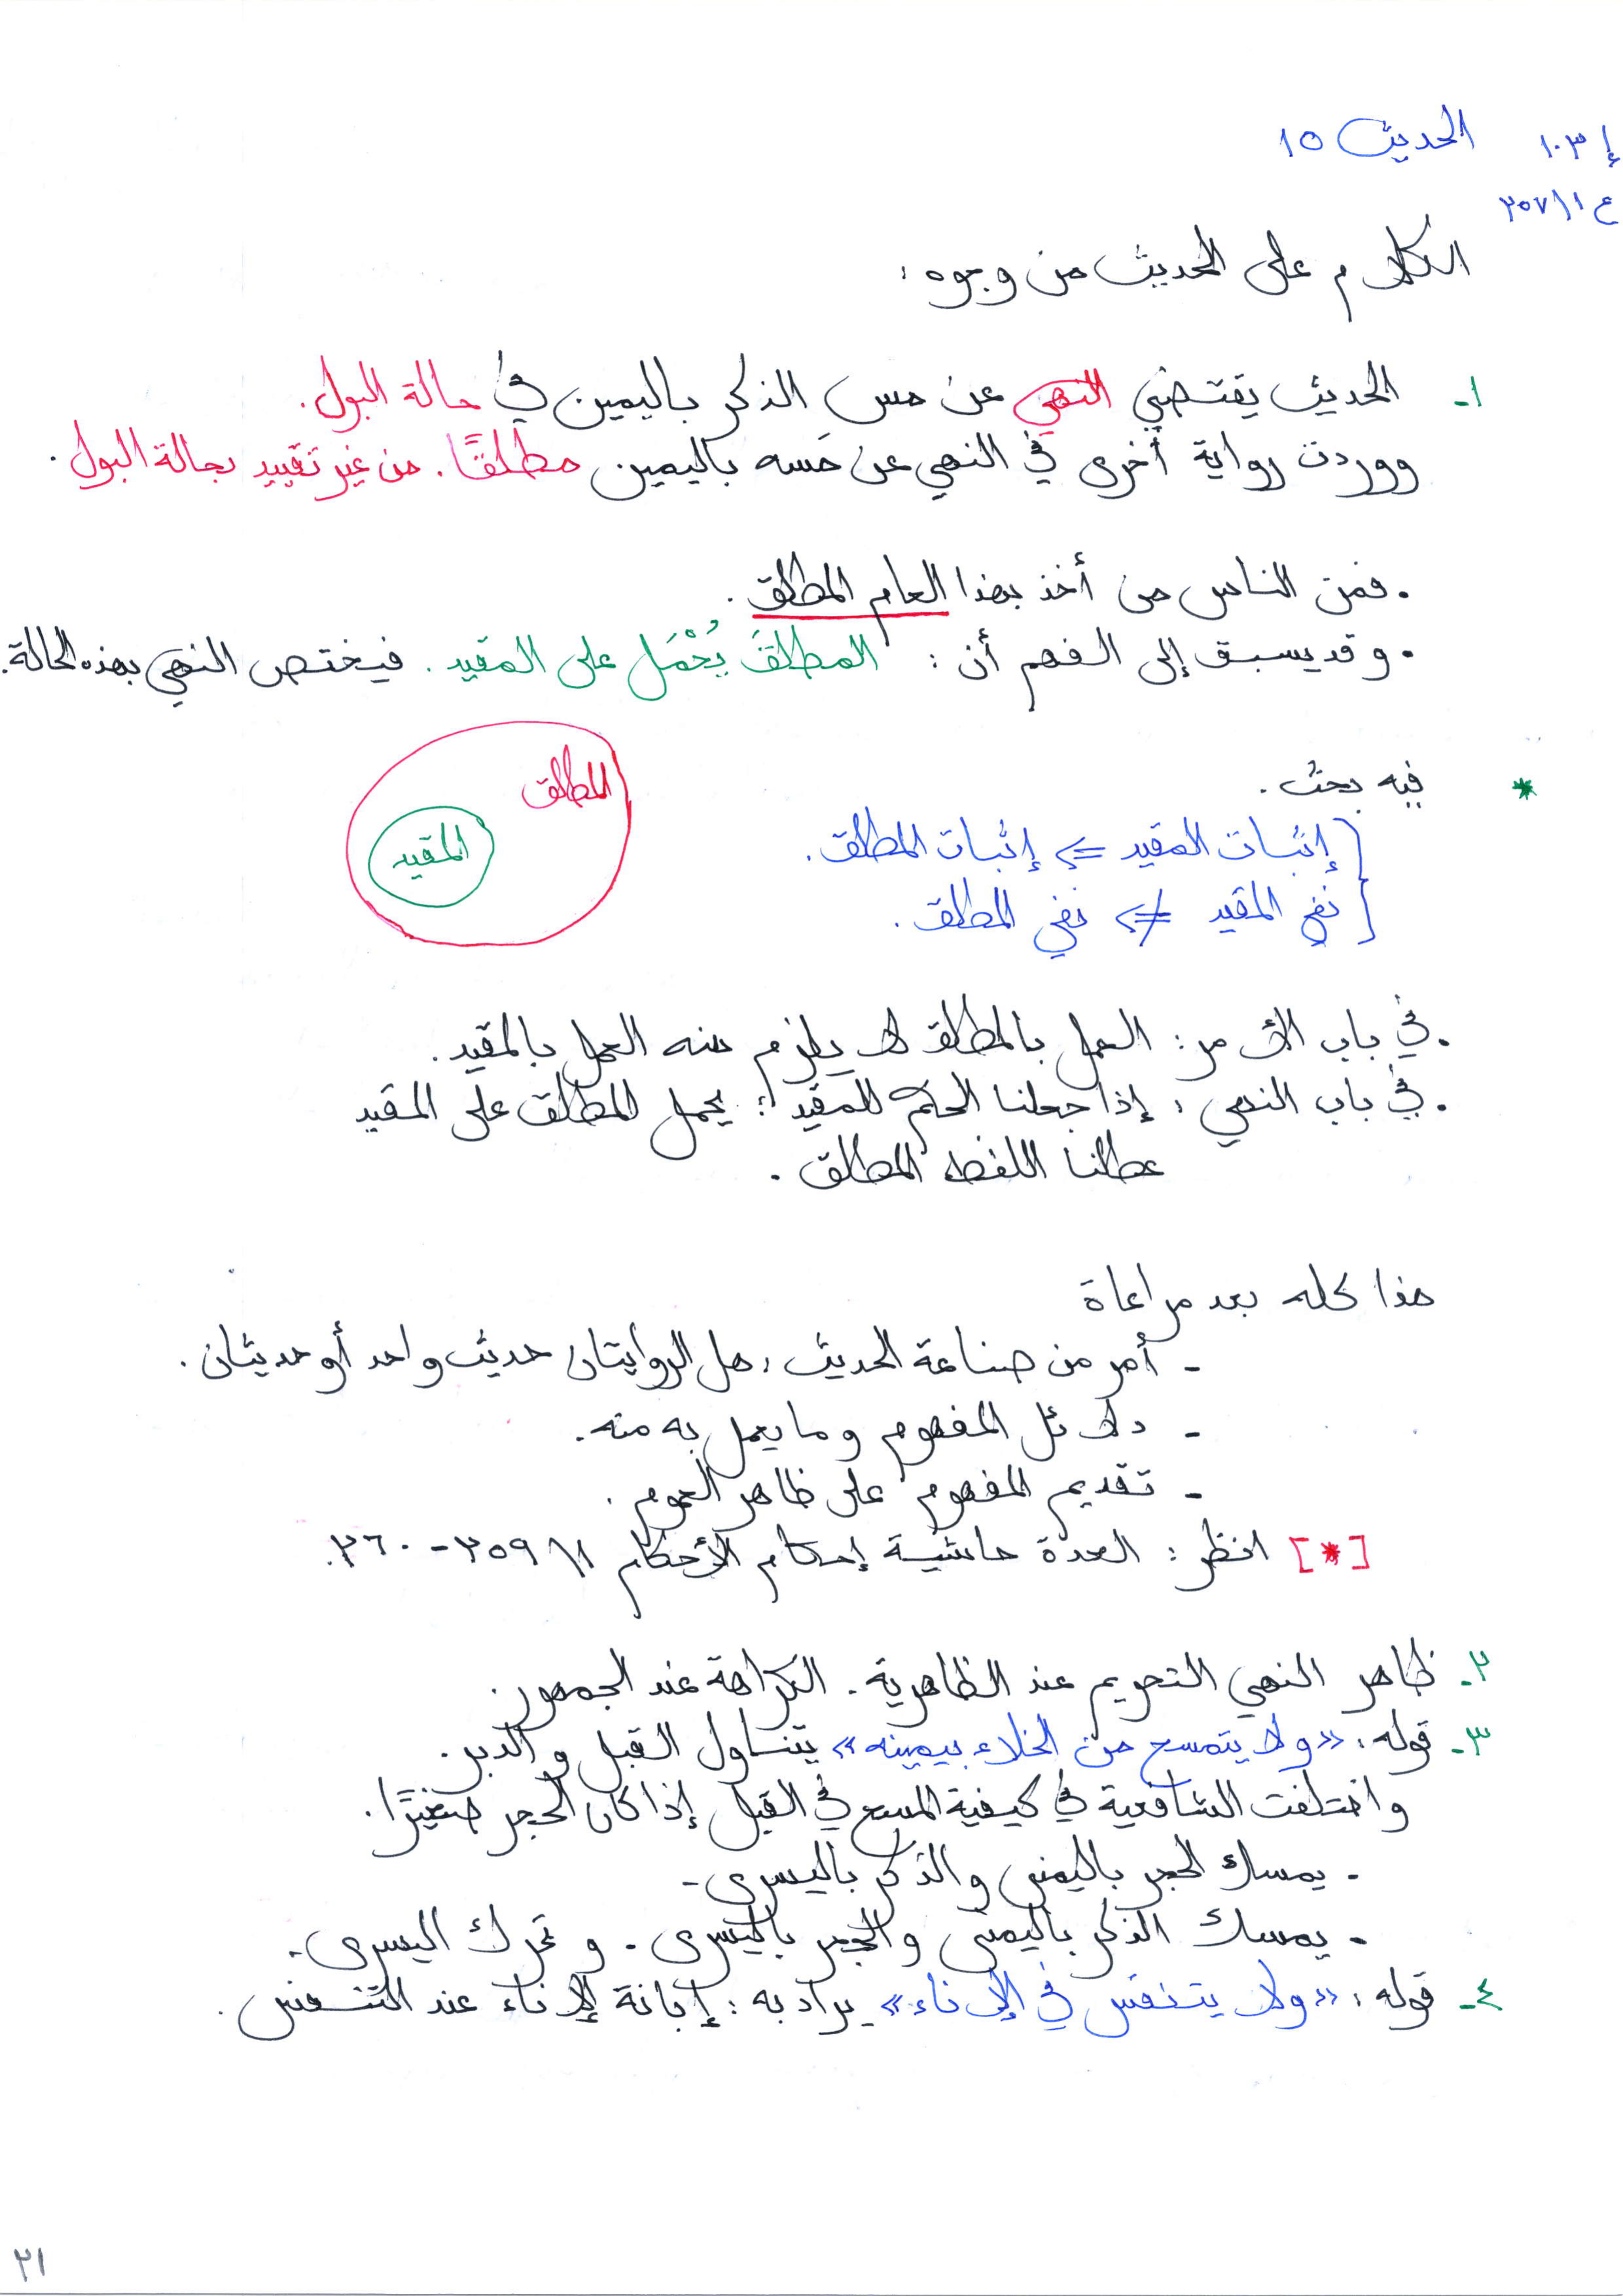 إ ١٠٣
الحديث ١٥
ع ٢٥٧/١
الكلام على الحديث من وجوه :
١- الحديث يقتضي النهي عن مس الذكر باليمين في حالة البول.
ووردت رواية أخرى في النهي عن مَسه باليمين مطلقًا. من غير تقييد بحالة البول.
• فمن الناس من أخذ بهذا العام المطلق.
• وقد يسبق إلى الفهم أن : المطلقَ يُحْمَل على المقيد. فيختص النهي بهذه الحالة.
* فيه بحث.
المطلق
المقيد
إثبات المقيد => إثبات المطلق.
نفي المقيد ≠> نفي المطلق.
• في باب الأمر: العمل بالمطلق لا يلزم منه العمل بالمقيد.
• في باب النهي : إذا جعلنا الحكم للمقيد ؛ يحمل المطلق على المقيد
عطلنا اللفظ المطلق.
هذا كله بعد مراعاة
- أمر من صناعة الحديث : هل الروايتان حديث واحد أو حديثان.
- دلائل المفهوم وما يعمل به منه.
- تقديم المفهوم على ظاهر العموم.
[*] انظر : العدة حاشية إحكام الأحكام ١/ ٢٥٩-٢٦٠.
٢- ظاهر النهي التحريم عند الظاهرية. الكراهة عند الجمهور.
٣- قوله : «ولا يتمسح من الخلاء بيمينه» يتناول القبل والدبر.
واختلفت الشافعية في كيفية المسح في القبل إذا كان الحجر صغيرًا.
- يمسك الحجر باليمنى والذكر باليسرى.
- يمسك الذكر باليمنى والحجر باليسرى. وتحرك اليسرى.
٤- قوله : «ولا يتنفس في الإناء» يراد به : إبانة الإناء عند التنفس.
٢١